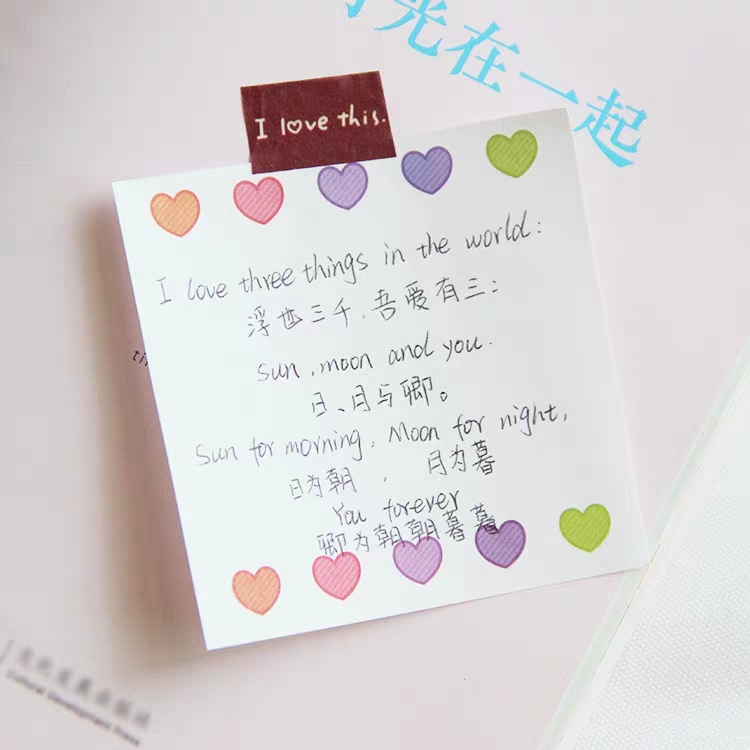 光在一起
I love this.
I love three things in the world:
浮世三千，吾爱有三：
Sun, moon and you.
日、月与卿。
Sun for morning, Moon for night,
日为朝，月为暮
You forever
卿为朝朝暮暮
Cultural Development Press